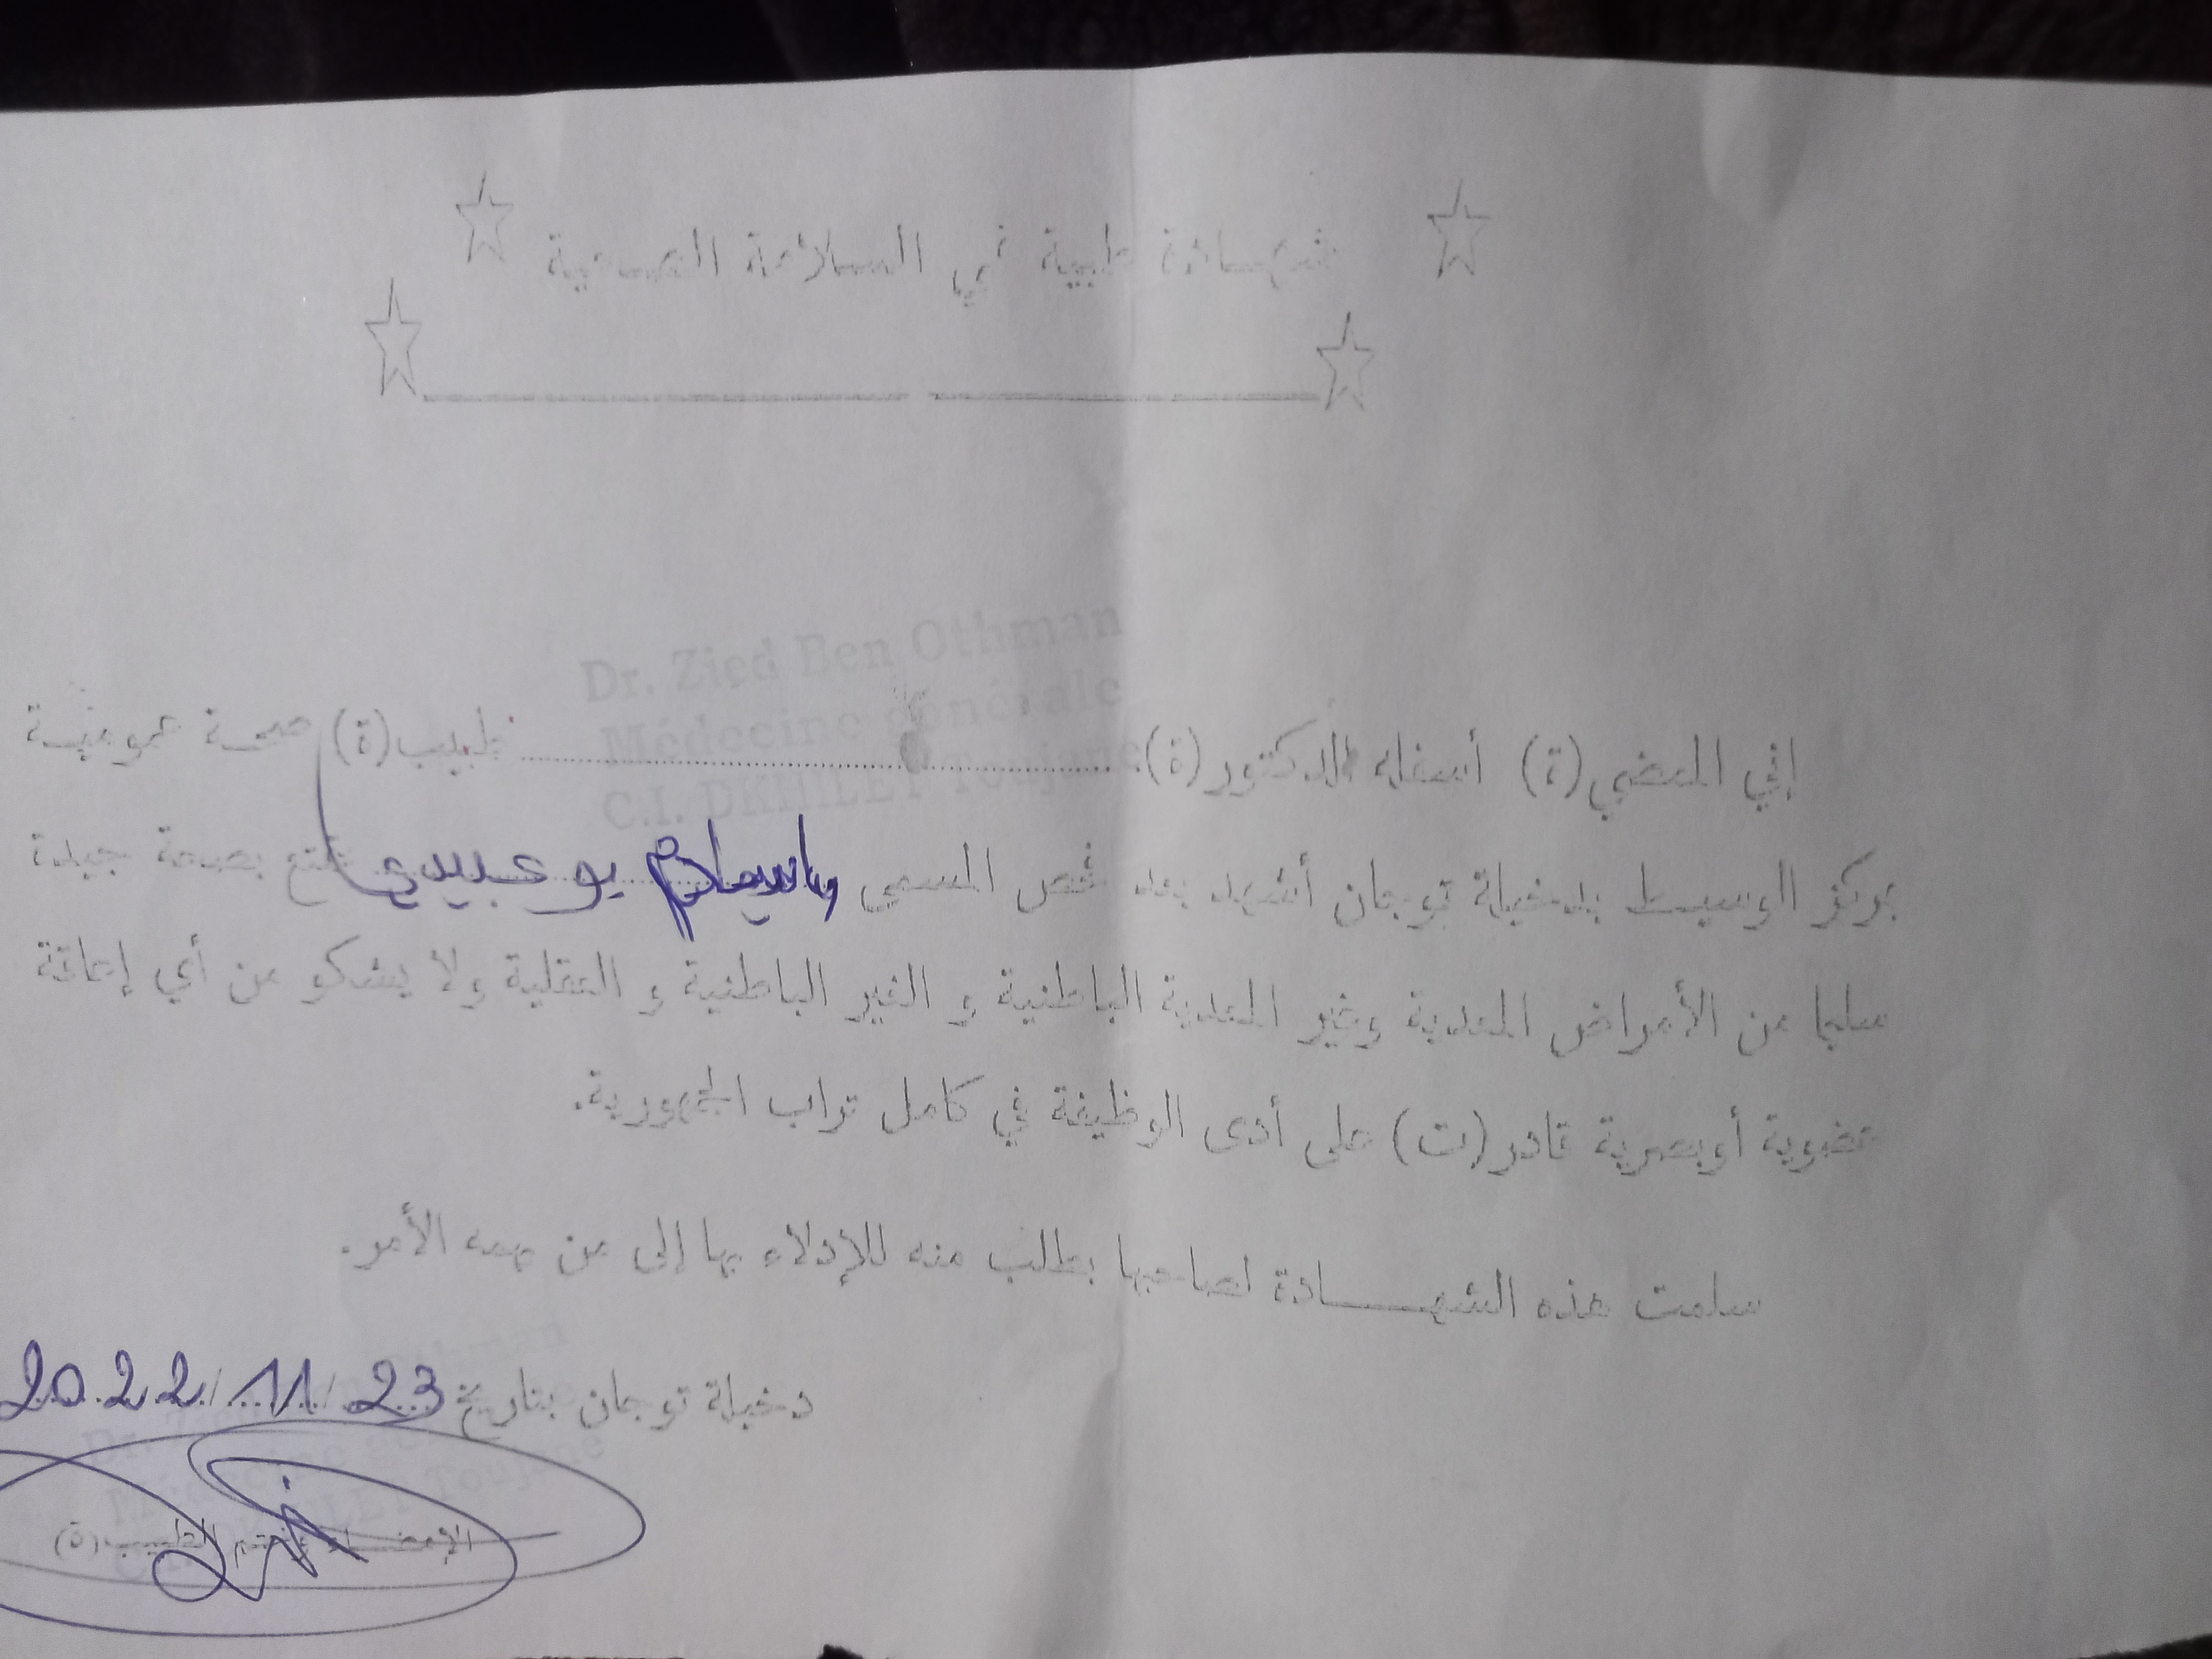 شهادة طبية في السلامة الصحية
Dr. Zied Ben Othman
Médecine générale
C.I. DKHILET Toujane
إني الممضي(ة) أسفله الدكتور(ة)............................طبيب(ة) صحة عمومية
بمركز الوسيط بدخيلة توجان أشهد بعد فحص المسمى إسلام بوعبيدي يتمتع بصحة جيدة
سليما من الأمراض المعدية وغير المعدية الباطنية و الغير الباطنية و العقلية ولا يشكو من أي إعاقة
عضوية أوبصرية قادر(ت) على أدى الوظيفة في كامل تراب الجمهورية.
سلمت هذه الشهــــادة لصاحبها بطلب منه للإدلاء بها إلى من يهمه الأمر.
دخيلة توجان بتاريخ 23/11/2022
الإمضاء وختم الطبيب(ة)